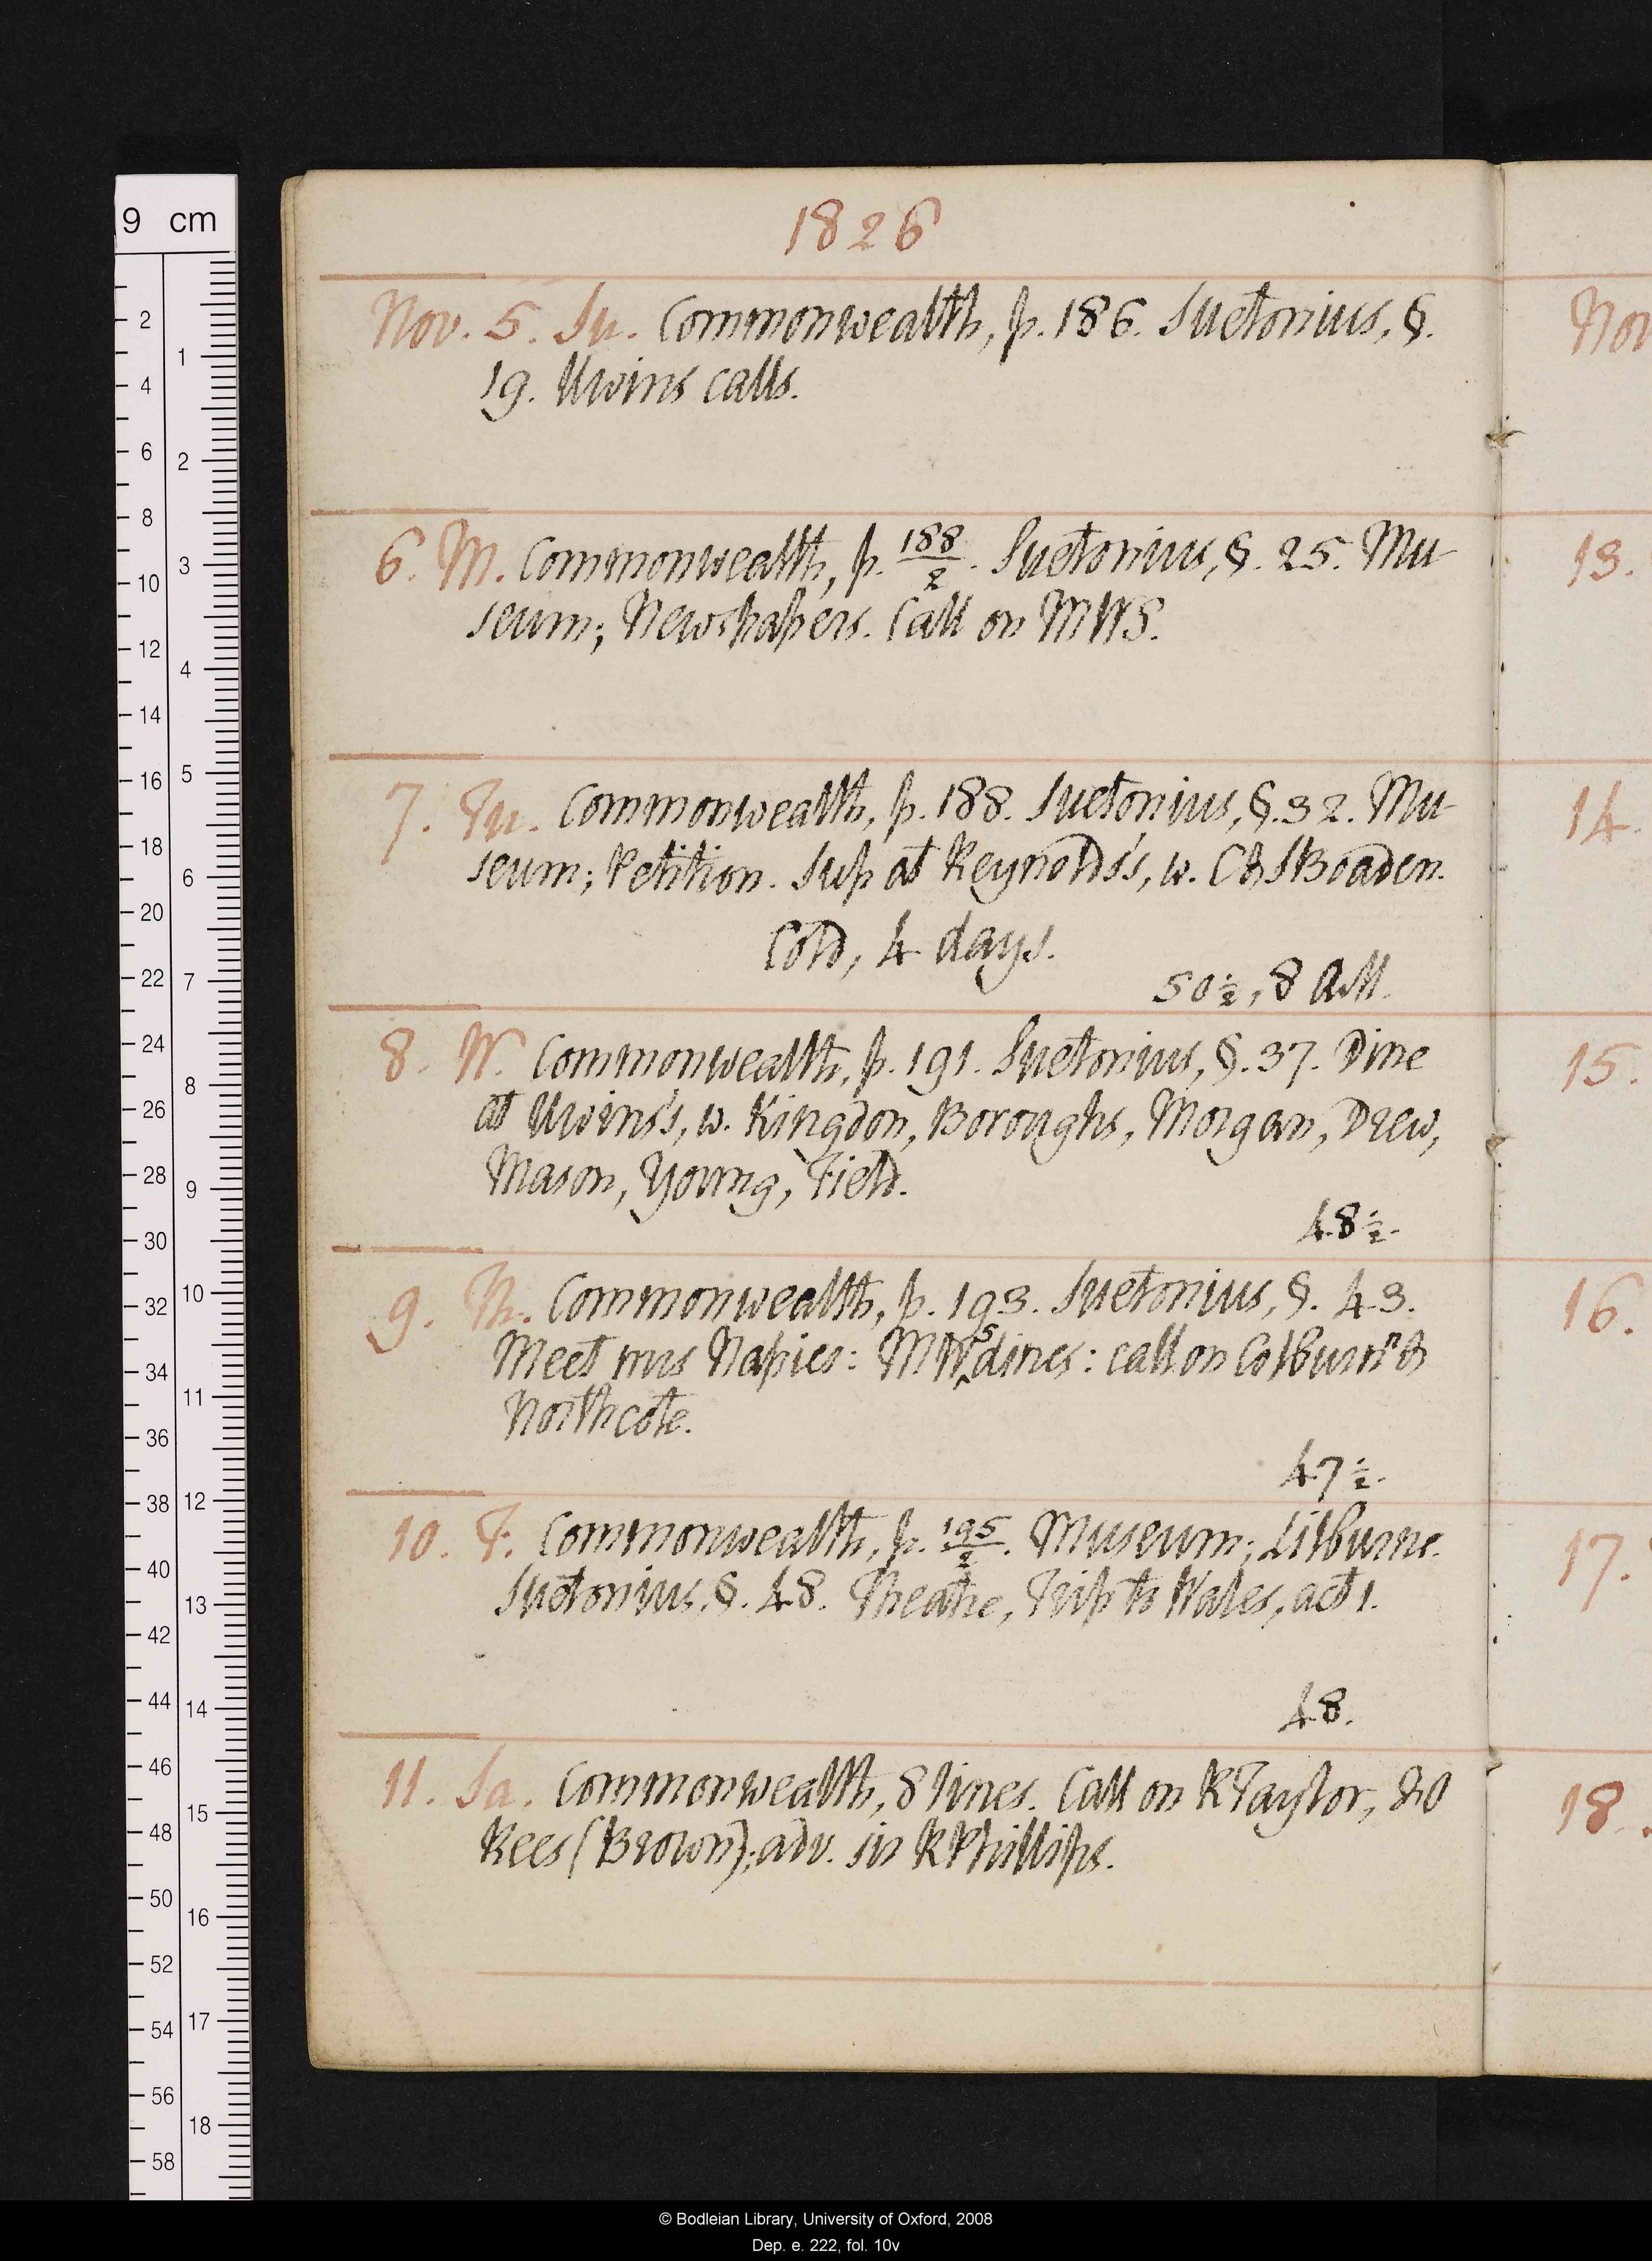 1826
Nov. 5. Su. Commonwealth, p. 186. Suetonius, §.
19. Uwins calls.
6. M. Commonwealth, p. 188/2. Suetonius, §. 25. Mu-
seum; Newspapers. Call on MWS.
7. Tu. Commonwealth, p. 188. Suetonius, §. 32. Mu-
seum; Petition. Sup at Reynolds's, w. Ch & Boaden.
Cold, 4 days.
50½, 8 AM.
8. W. Commonwealth, p. 191. Suetonius, §. 37. Dine
at Uwins's, w. Kingdon, Boroughs, Morgan, Drew,
Mason, Young, Field.
48½.
9. Th. Commonwealth, p. 193. Suetonius, §. 43.
Meet mrs Napier: MWS dines: call on Colburn n &
Northcote.
47½.
10. F. Commonwealth, p. 195/2. Museum; Lilburne.
Suetonius, §. 48. Theatre, Trip to Wales, act 1.
48.
11. Sa. Commonwealth, 8 lines. Call on R Taylor, & O
Rees (Brown); adv. sir R Phillips.
Nov
13.
14.
15.
16.
17.
18.
9 cm
2
4
6
8
10
12
14
16
18
20
22
24
26
28
30
32
34
36
38
40
42
44
46
48
50
52
54
56
58
1
2
3
4
5
6
7
8
9
10
11
12
13
14
15
16
17
18
© Bodleian Library, University of Oxford, 2008
Dep. e. 222, fol. 10v